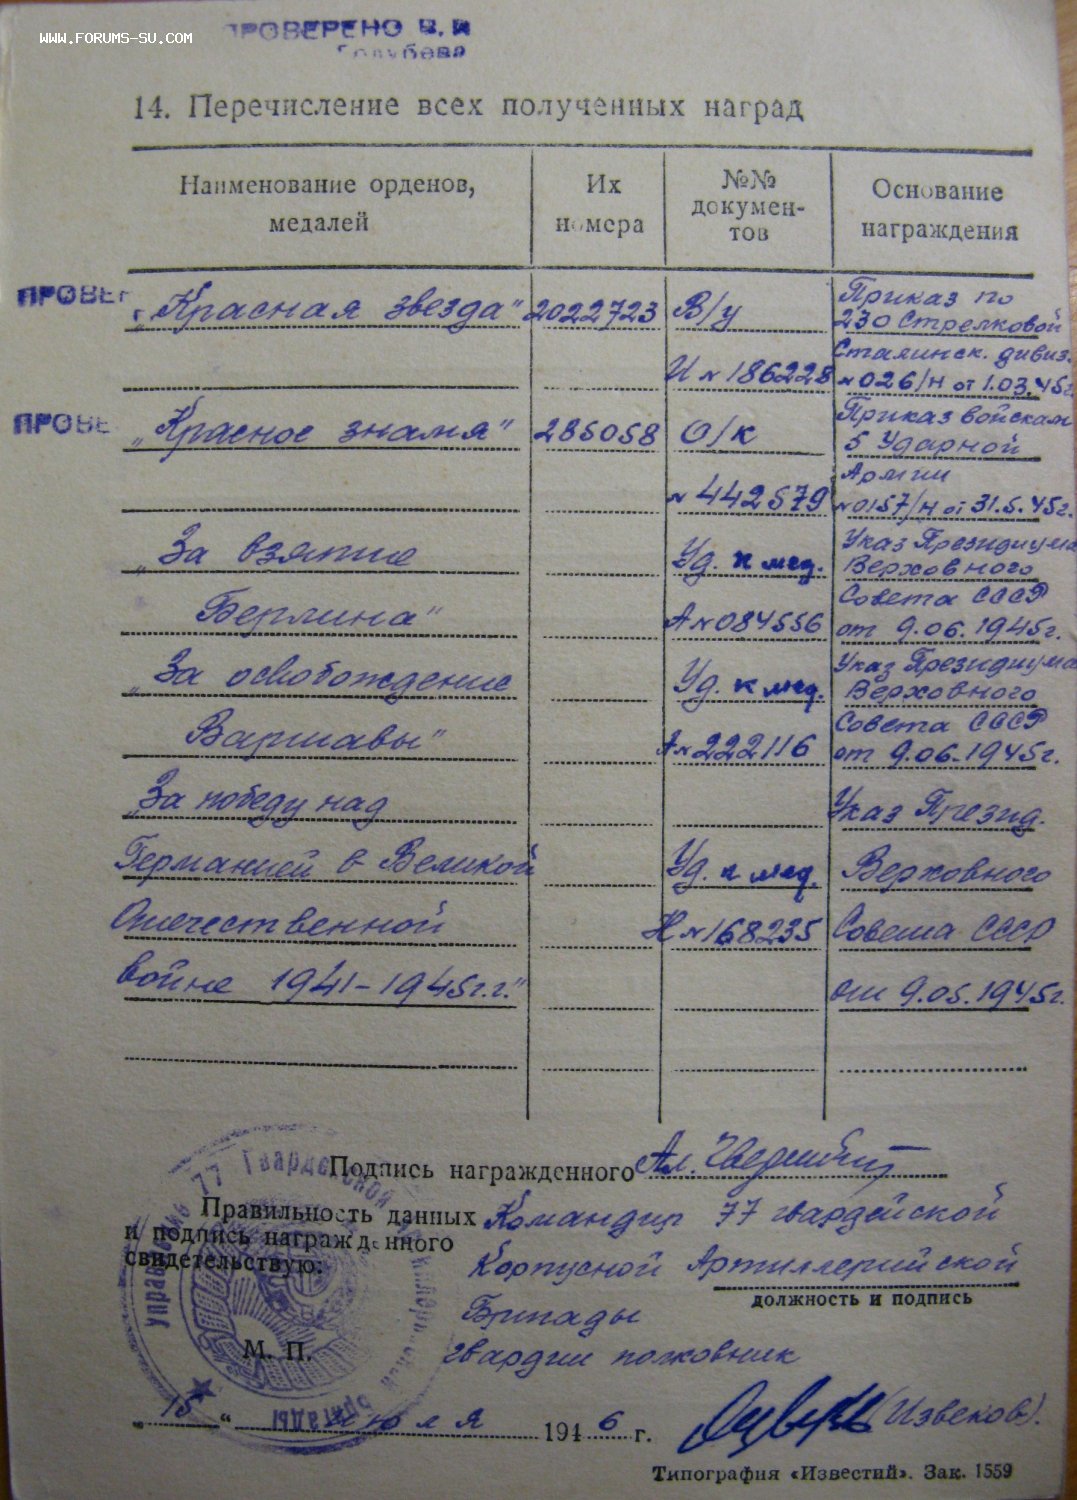 WWW.FORUMS-SU.COM
ПРОВЕРЕНО В.И
Голубева
14. Перечисление всех полученных наград
Наименование орденов, медалей
Их номера
№№ докумен-
тов
Основание награждения
ПРОВЕР
„Красная звезда" 2022723 В/у Приказ по
230 Стрелковой
И № 186228 Сталинск. дивиз.
№ 026/н от 1.03.45г
ПРОВЕ
„Красное знамя" 285058 О/к Приказ войскам
5 Ударной
№ 442579 Армии
№ 0157/н от 31.5.45г.
„За взятие Уд. к мед. Указ Президиума
Верховного
Берлина" А № 084556 Совета СССР
от 9.06.1945г.
„За освобождение Уд. к мед. Указ Президиума
Верховного
Варшавы" А № 222116 Совета СССР
от 9.06.1945г.
„За победу над Указ Презид.
Германией в Великой Уд. к мед. Верховного
Отечественной Н № 168235 Совета СССР
войне 1941-1945г.г." от 9.05.1945г.
Подпись награжденного Ал.
Правильность данных
и подпись награжденного
свидетельствую:
Командир 77 гвардейской
Корпусной Артиллерийской
должность и подпись
Бригады
гвардии полковник
М. П.
Управление 77 Гвардейской Бригады
„15" июля 1946 г.
(Извеков).
Типография «Известий». Зак. 1559